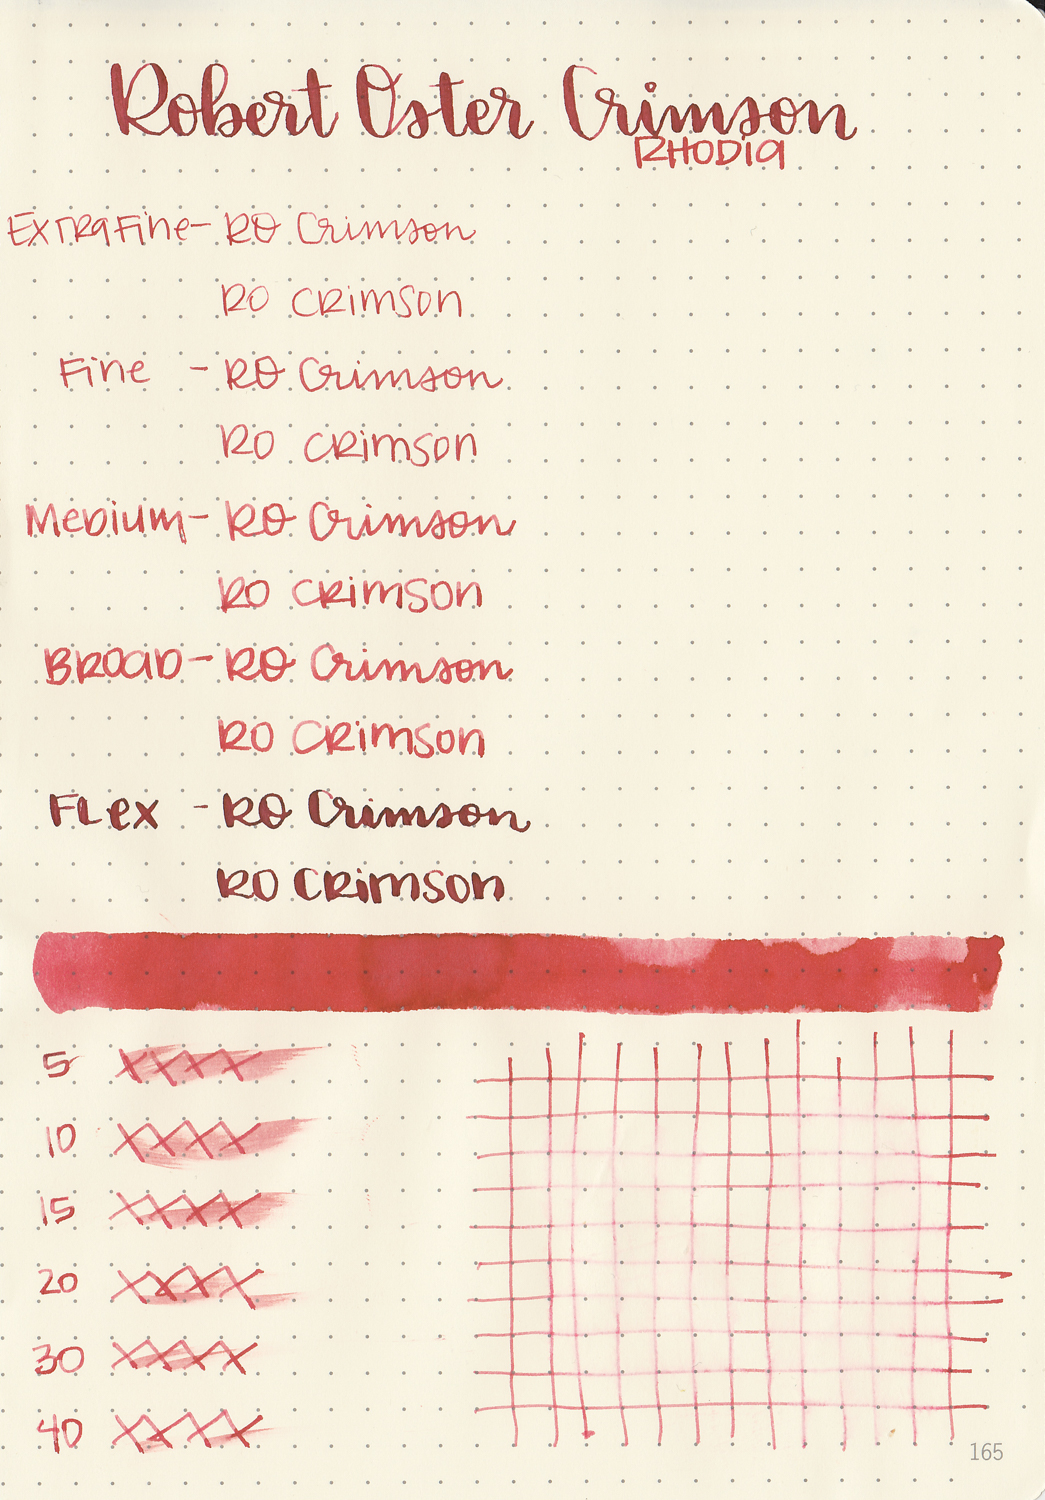 Robert Oster Crimson
RHODIA
Extra Fine - RO Crimson
RO Crimson
Fine - RO Crimson
RO Crimson
Medium - RO Crimson
RO Crimson
Broad - RO Crimson
RO Crimson
Flex - RO Crimson
RO Crimson
5 XXXX
10 XXXX
15 XXXX
20 XXXX
30 XXXX
40 XXXX
165